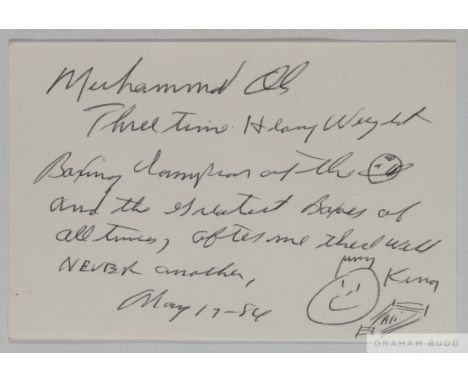 Muhammad Ali
Three time Heavy Weight
Boxing Champion of the
and the Greatest Boxes of
all times, after me there will
NEVER another,
King
May 17-84
Ali
GRAHAM BUDD